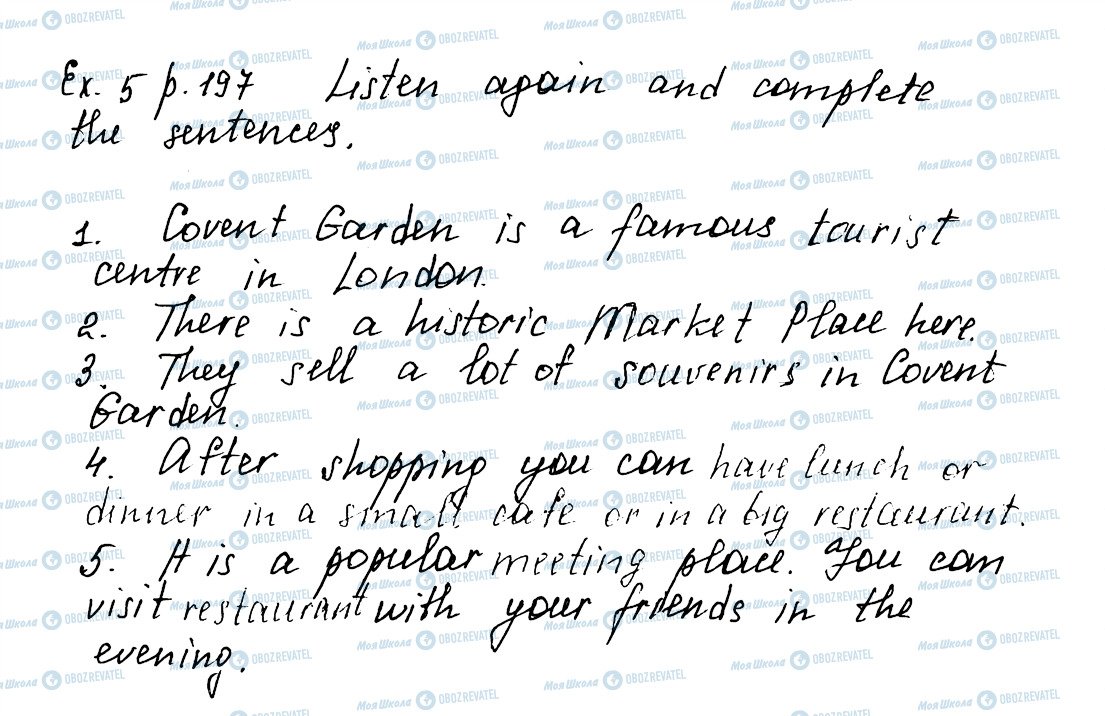 Ex. 5 p. 197 Listen again and complete
the sentences.
1. Covent Garden is a famous tourist
centre in London.
2. There is a historic Market Place here.
3. They sell a lot of souvenirs in Covent
Garden.
4. After shopping you can have lunch or
dinner in a small cafe or in a big restaurant.
5. It is a popular meeting place. You can
visit restaurant with your friends in the
evening.